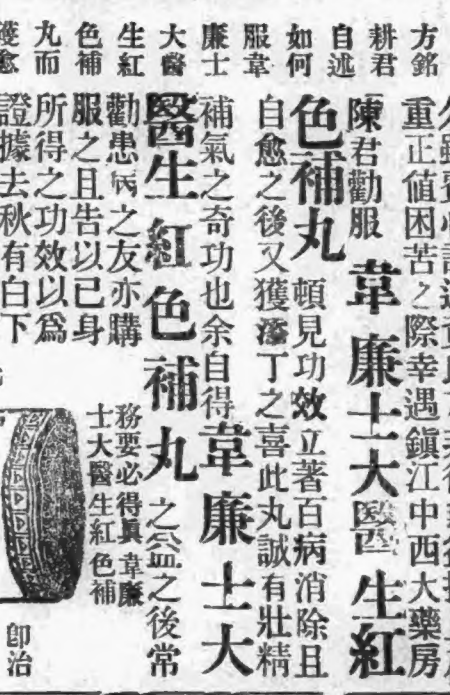 方銘
耕君
自述
如何
服韋
廉士
大醫
生紅
色補
丸而
獲愈
重正値困苦之際幸遇鎮江中西大藥房
陳君勸服韋廉士大醫生紅
色補丸頓見功效立著百病消除且
自愈之後又獲添丁之喜此丸誠有壯精
補氣之奇功也余自得韋廉士大
醫生紅色補丸之益之後常
勸患病之友亦購
服之且告以已身
所得之功效以爲
證據去秋有白下
務要必得眞韋廉
士大醫生紅色補
卽治